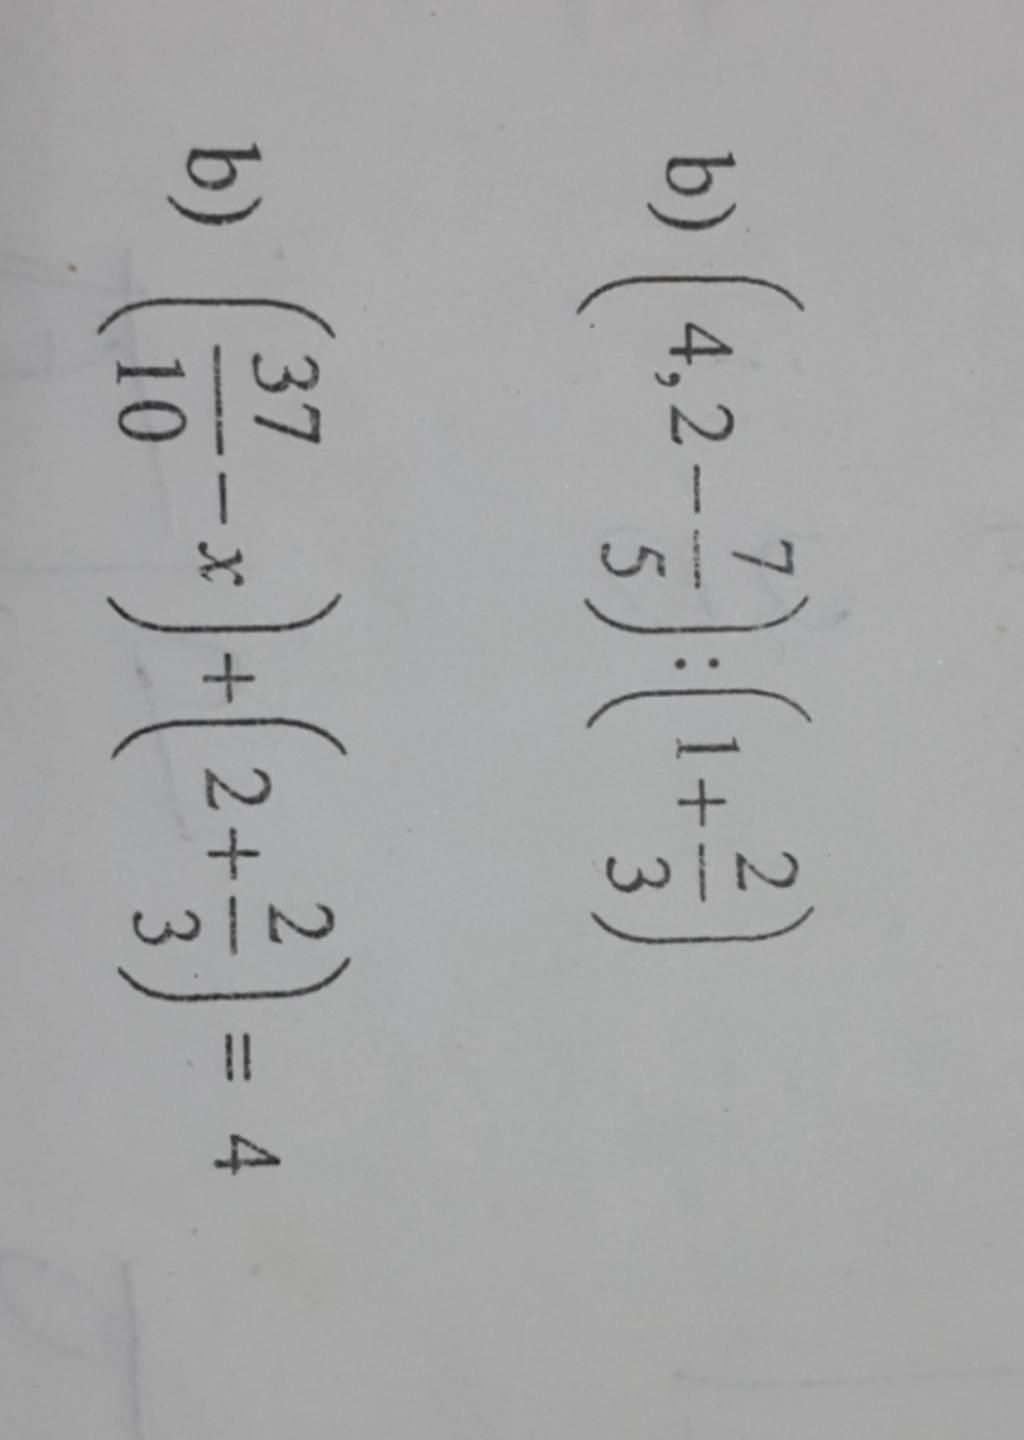 b) (4,2 − 7/5) : (1 + 2/3)
b) (37/10 − x) + (2 + 2/3) = 4